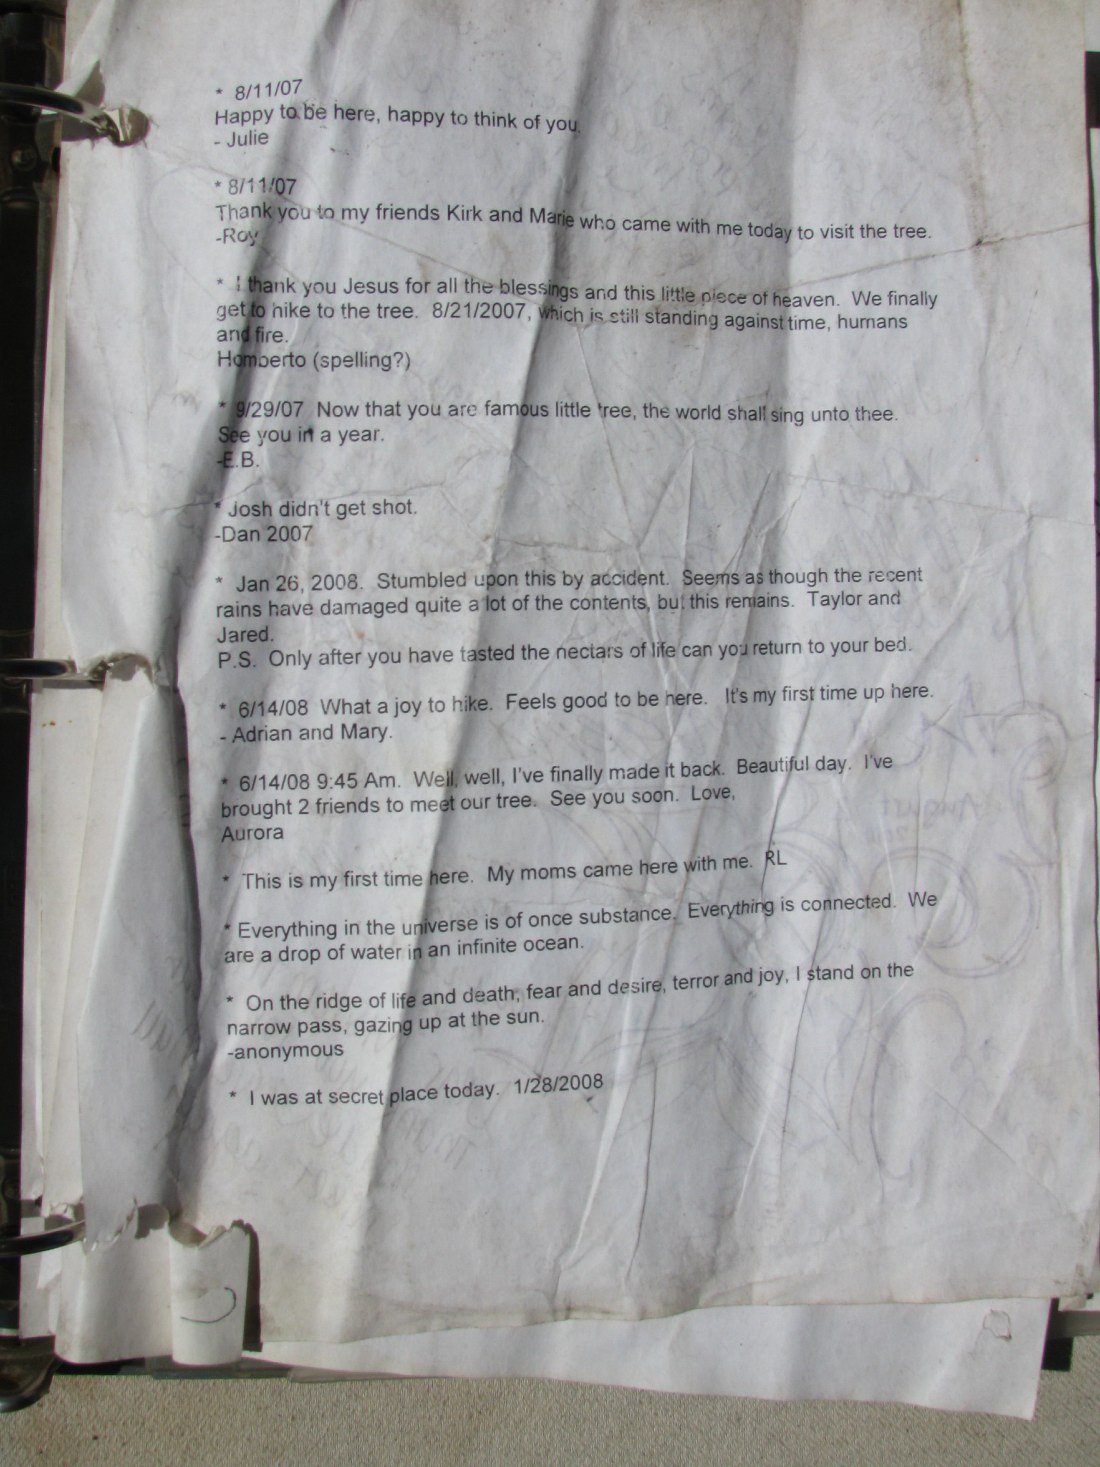 * 8/11/07
Happy to be here, happy to think of you.
- Julie
* 8/11/07
Thank you to my friends Kirk and Marie who came with me today to visit the tree.
-Roy
* I thank you Jesus for all the blessings and this little piece of heaven. We finally
get to hike to the tree. 8/21/2007, which is still standing against time, humans
and fire.
Homberto (spelling?)
* 9/29/07 Now that you are famous little tree, the world shall sing unto thee.
See you in a year.
-E.B.
* Josh didn't get shot.
-Dan 2007
* Jan 26, 2008. Stumbled upon this by accident. Seems as though the recent
rains have damaged quite a lot of the contents, but this remains. Taylor and
Jared.
P.S. Only after you have tasted the nectars of life can you return to your bed.
* 6/14/08 What a joy to hike. Feels good to be here. It's my first time up here.
- Adrian and Mary.
* 6/14/08 9:45 Am. Well, well, I've finally made it back. Beautiful day. I've
brought 2 friends to meet our tree. See you soon. Love,
Aurora
* This is my first time here. My moms came here with me. RL
* Everything in the universe is of once substance. Everything is connected. We
are a drop of water in an infinite ocean.
* On the ridge of life and death, fear and desire, terror and joy, I stand on the
narrow pass, gazing up at the sun.
-anonymous
* I was at secret place today. 1/28/2008